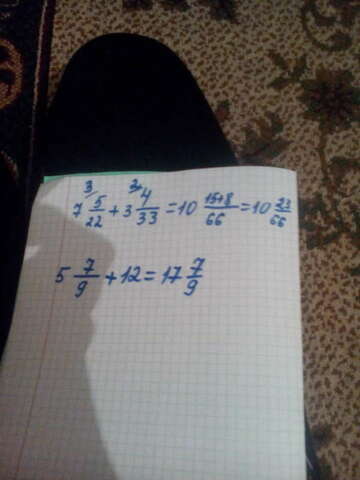 7 3/ 5/22 + 3 2/ 4/33 = 10 15+8/66 = 10 23/66
5 7/9 + 12 = 17 7/9